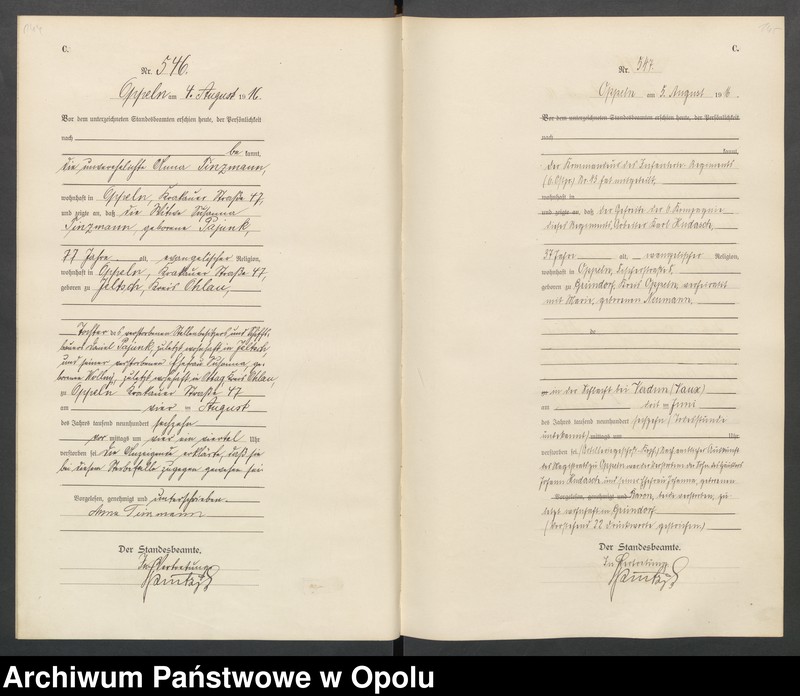 C.
Nr. 546.
Oppeln am 4. August 1916.
Vor dem unterzeichneten Standesbeamten erschien heute, der Persönlichkeit
nach
be kannt,
die unverehelichte Anna Tinzmann,
wohnhaft in Oppeln, Krakauer Straße 47,
und zeigte an, daß die Witwe Susanna
Tinzmann, geborene Pajunk,
77 Jahre alt, evangelischer Religion,
wohnhaft in Oppeln, Krakauer Straße 47,
geboren zu Jeltsch, Kreis Ohlau,
Tochter des verstorbenen Stellenbesitzers und
Daniel Pajunk, zuletzt wohnhaft in Jeltsch,
und seiner verstorbenen Ehefrau Susanna, ge-
borene zuletzt wohnhaft in Kreis Ohlau,
zu Oppeln Krakauer Straße 47
am vier ten August
des Jahres tausend neunhundert sechzehn
vor mittags um vier ein viertel Uhr
verstorben sei. Die Anzeigende erklärte, daß sie
bei diesem Sterbefalle zugegen gewesen sei
Vorgelesen, genehmigt und unterschrieben.
Anna Tinzmann
Der Standesbeamte.
In Vertretung
C.
Nr. 547.
Oppeln am 5. August 1916.
Vor dem unterzeichneten Standesbeamten erschien heute, der Persönlichkeit
nach
kannt,
Der Kommandeur des Infanterie Regiments
Nr. hat mitgeteilt,
wohnhaft in
und zeigte an, daß der Gefreite der 6 Kompagnie
dieses Regiments, Arbeiter Karl Kudasch,
37 Jahre alt, evangelischer Religion,
wohnhaft in Oppeln, Fischerstraße
geboren zu Gründorf, Kreis Oppeln, verheiratet
mit Marie, geborenen Neumann
in der Schlacht bei Verdun (Vaux)
am ten Juni
des Jahres tausend neunhundert sechzehn (Todesstunde
unbekannt) mittags um Uhr
verstorben sei. Nach amtlicher Auskunft
des Magistrats zu Oppeln war der Verstorbene der Sohn des Häuslers
Johann Kudasch und seiner Ehefrau Johanna, geborenen
Vorgelesen, genehmigt und Baron, beide verstorben, zu-
letzt wohnhaft in Gründorf
(Vorstehend 22 Druckworte gestrichen)
Der Standesbeamte.
In Vertretung
Archiwum Państwowe w Opolu